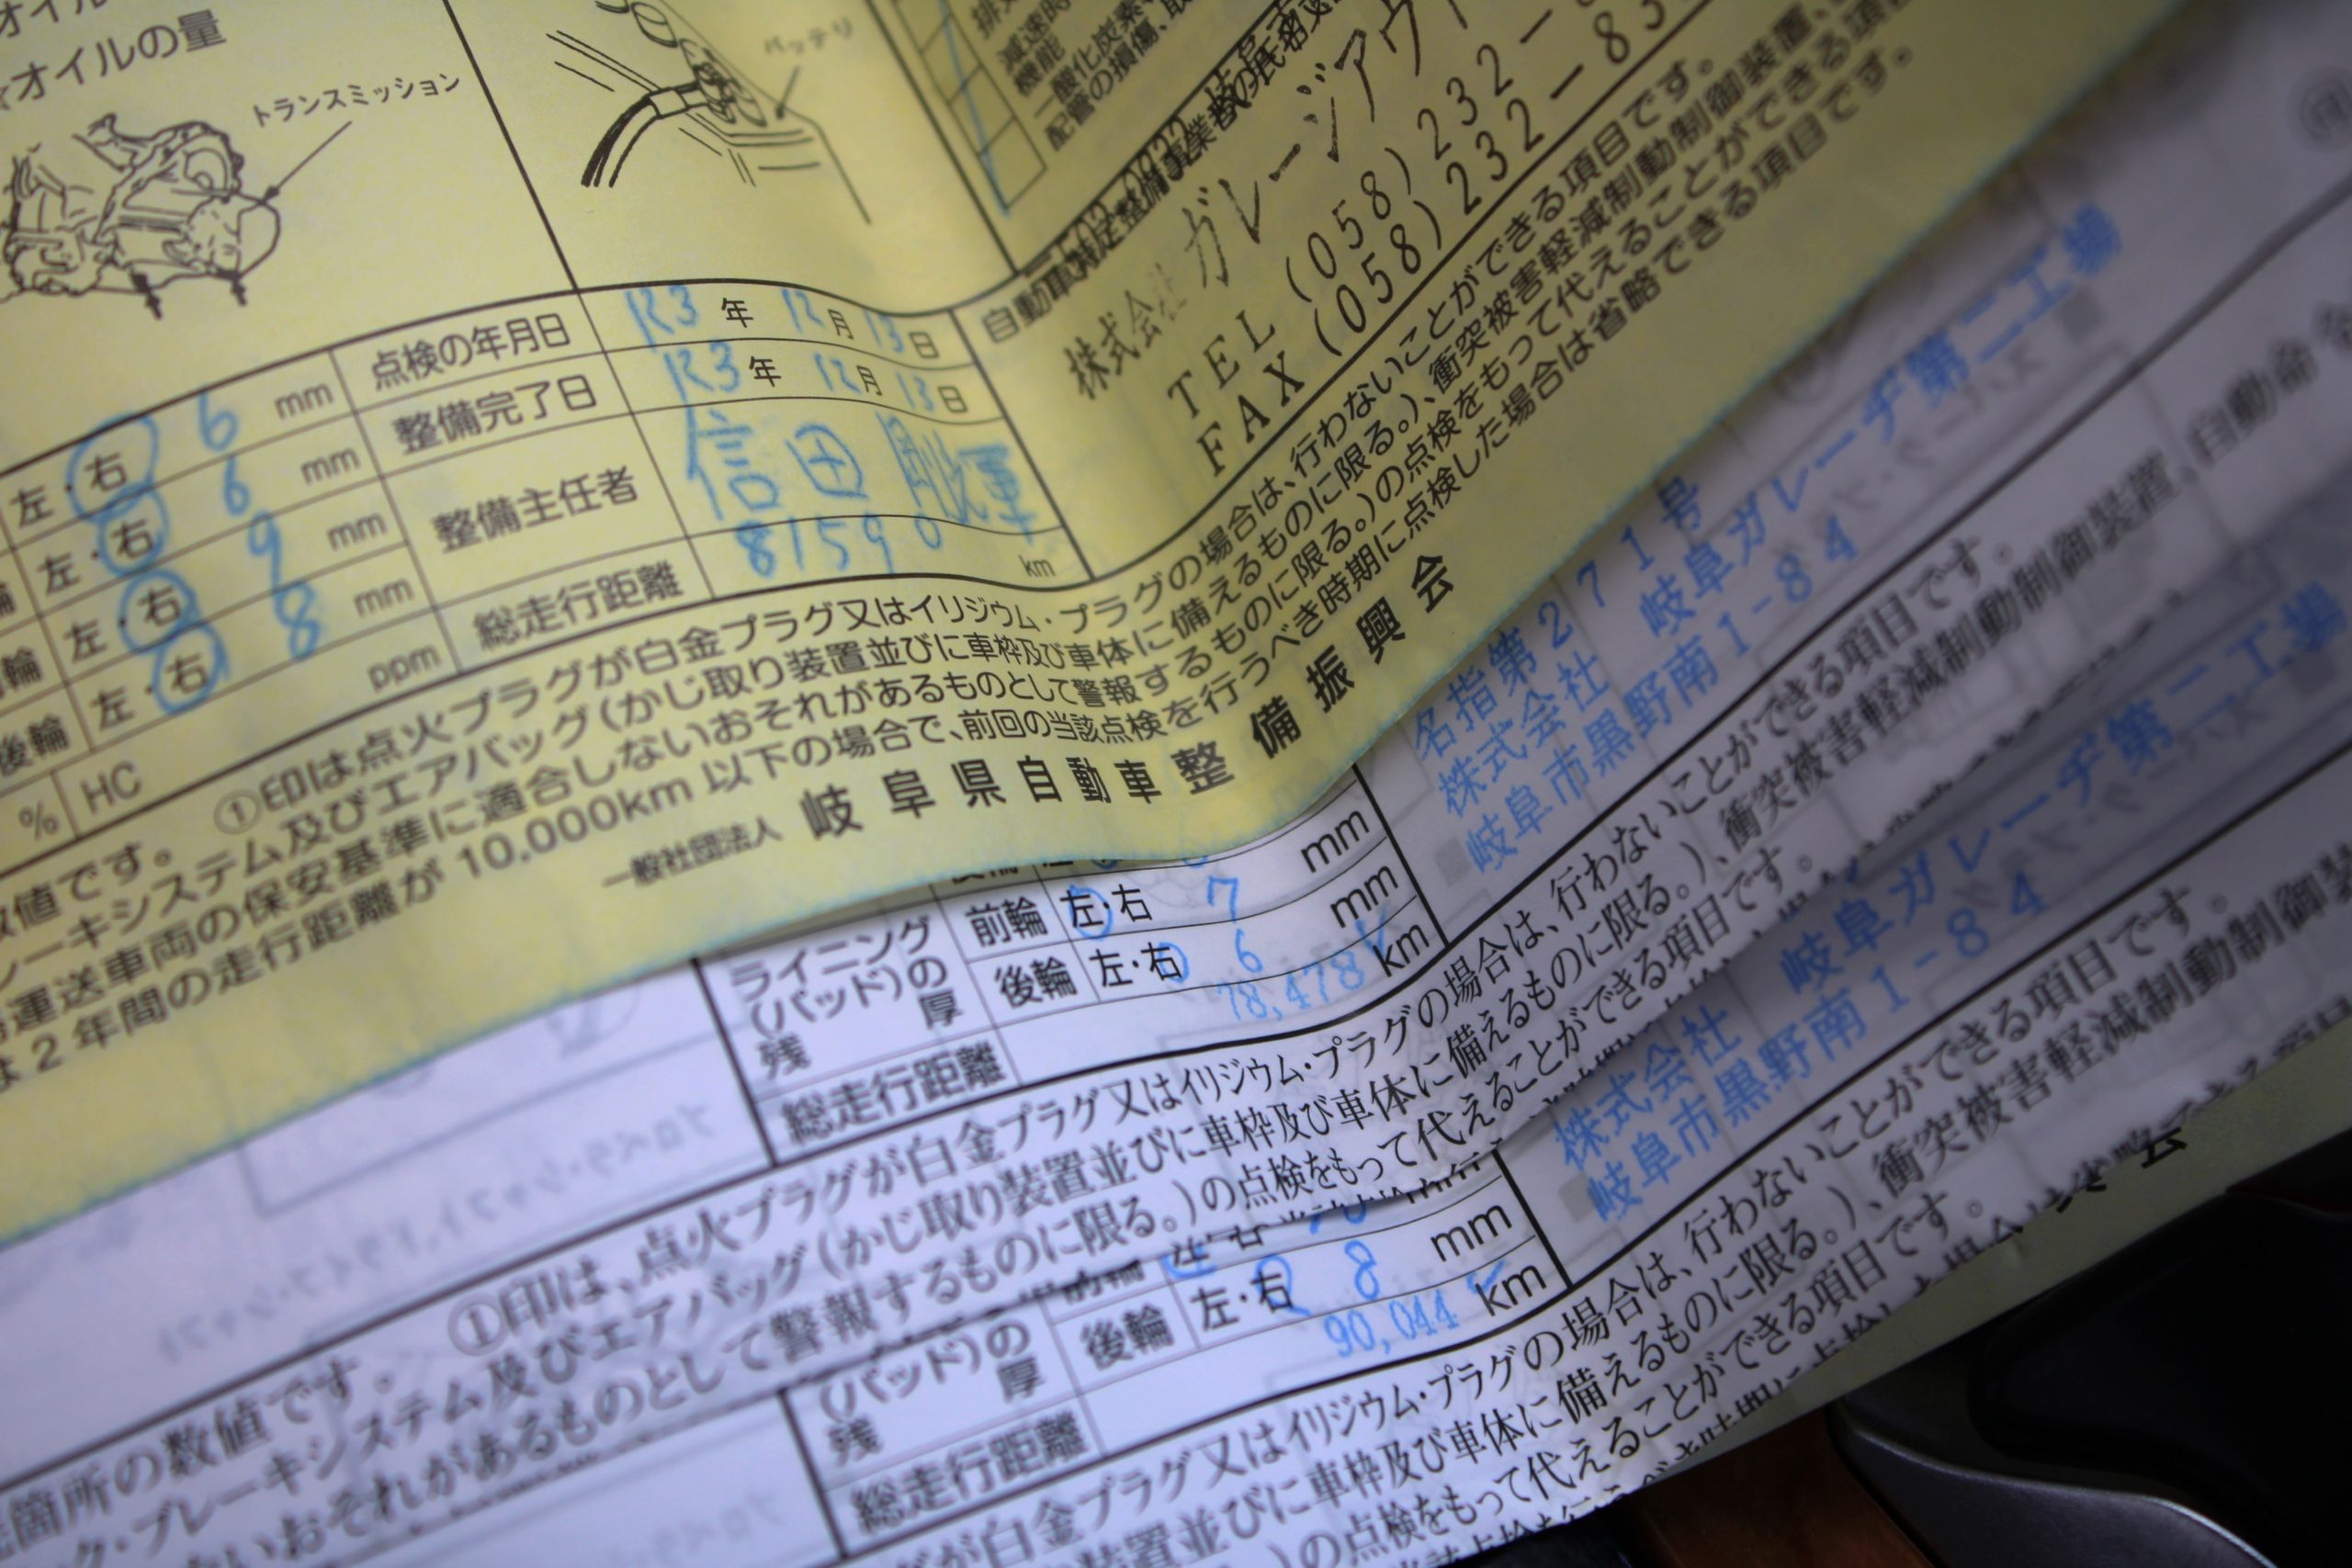 オイルの量
トランスミッション
バッテリ
減速時
機能
一酸化炭素
配管の損傷、取
株式会社 ガレージアウ
TEL (058) 232-8
FAX (058) 232-83
点検の年月日 R3 年 12 月 13 日
整備完了日 R3 年 12 月 13 日
整備主任者 信田 剛輝
総走行距離 81590 km
左・右 6 mm
左・右 6 mm
輪 左・右 9 mm
後輪 左・右 8 mm
% HC ppm
数値です。 ①印は点火プラグが白金プラグ又はイリジウム・プラグの場合は、行わないことができる項目です。
レーキシステム及びエアバッグ(かじ取り装置並びに車枠及び車体に備えるものに限る。)、衝突被害軽減制動制御装置、
運送車両の保安基準に適合しないおそれがあるものとして警報するものに限る。)の点検をもって代えることができる項
は2年間の走行距離が 10,000km 以下の場合で、前回の当該点検を行うべき時期に点検した場合は省略できる項目です。
一般社団法人 岐阜県自動車整備振興会
名指第2271号
株式会社 岐阜ガレーヂ第二工場
岐阜市黒野南1-84
ライニング
(パッド)の
残 厚
前輪 左・右 7 mm
後輪 左・右 6 mm
総走行距離 78,478 km
箇所の数値です。 ①印は、点火プラグが白金プラグ又はイリジウム・プラグの場合は、行わないことができる項目です。
ク・ブレーキシステム及びエアバッグ(かじ取り装置並びに車枠及び車体に備えるものに限る。)、衝突被害軽減制動制御装置、自動命
ないおそれがあるものとして警報するものに限る。)の点検をもって代えることができる項目です。
株式会社 岐阜ガレーヂ第二工場
岐阜市黒野南1-84
(パッド)の
残 厚
後輪 左・右 8 mm
総走行距離 90,044 km
が白金プラグ又はイリジウム・プラグの場合は、行わないことができる項目です。
装置並びに車枠及び車体に備えるものに限る。)、衝突被害軽減制動制御装
)の点検をもって代えることができる項目です。